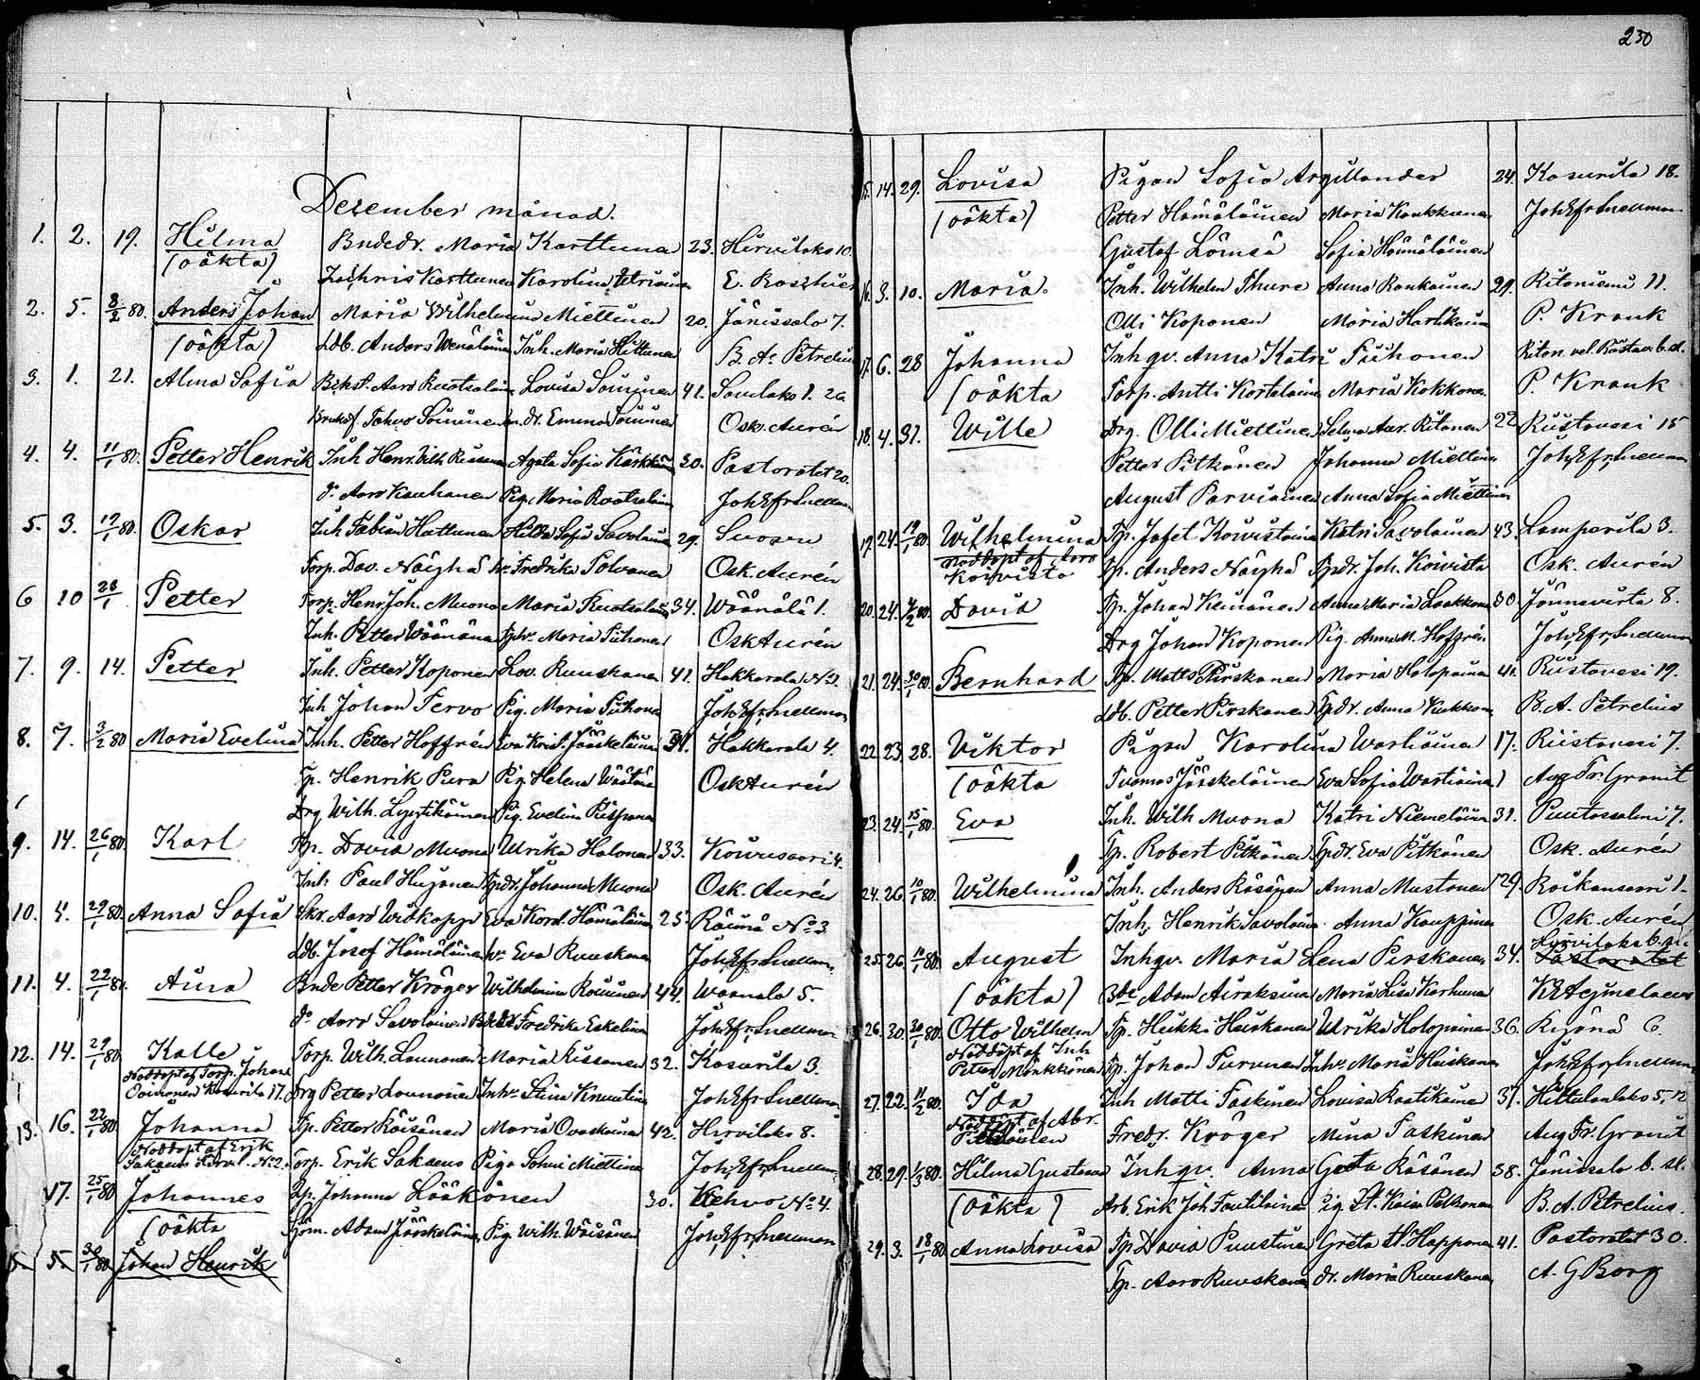 230
Desember månad.
1. 2. 19. Hilma Bndedr. Maria Karttunen 23. Hirvilaks 10.
(oäkta) Zachris Karttunen Karolina E. Roschier
2. 5. 8/2 80. Anders Johan Maria Wilhelmina Miettinen 20. Jänissalo 7.
(oäkta) Ldb. Anders Wenäläinen Inh. Maria Hittunen B. A. Petrelius
3. 1. 21. Alma Sofia Aaro Lovisa Soininen 41. Savilaks 1. 26
Soininen dr. Emma Soininen Osk. Aurén
4. 4. 11/1 80. Petter Henrik Inh Henr. Wilh. Agata Sofia Kärkkäinen 30. Pastoratet 20.
dº Aaro Kauhanen Pig. Maria Joh. Efr. Snellman
5. 3. 19/1 80. Oskar Inh Fabian Hattunen Hilda Sofia Savolainen 29. Suosu
Torp. Dav. Näighä hu Fredrika Tolvanen Osk. Aurén
6 10 28/1 Petter Torp. Henr. Joh. Muona Maria Ruotsalainen 34. Väänälä 1.
Inh. Petter Väänänen Tphu. Maria Tiihonen Osk Aurén
7. 9. 14. Petter Inh. Petter Koponen Lov. Ruuskanen 41. Hakkarala No 2
Inh Johan Tervo Pig. Maria Tiihonen Joh. Efr. Snellman
8. 7. 3/2 80 Maria Evelina Inh. Petter Hoffrén Eva Krist. Jääskeläinen 31. Hakkarala 4.
Tp. Henrik Pura Pig Helena Osk Aurén
Drg Wilh. Lyytikäinen Pig. Evelina
9. 14. 26/1 80 Karl Tp. David Muona Ulrika Halonen 33. Koivusaari 4.
Inh Paul Hujanen Tpdr. Johanna Muona Osk. Aurén
10. 4. 29/1 80. Anna Sofia Skr. Aaro Widkopp Eva Karol. Hämäläinen 25 Räimä No 3
Ldb. Josef Hämäläinen hu Eva Ruuskanen Joh. Efr. Snellman
11. 4. 22/1 80. Aina Bnde Petter Kröger Wilhelmina Koninen 44. Väänälä 5.
dº Aaro Savolainen Fredrika Eskelinen Joh. Efr. Snellman
12. 14. 29/1 80 Kalle Torp. Wilh. Lounonen Maria Kissanen 32. Kasurila 3.
Nöddöpt af Torp. Johan
Toivonen Kasurila 17. Drg Petter Lounonen Inhu Stina Knuutinen Joh Efr Snellman
13. 16. 22/1 80 Johanna Tp. Petter Räisänen Maria Ovaskainen 42. Hirvilaks 8.
Nöddopt af Erik
Sakaeus Hirvil. No 2. Torp. Erik Sakaeus Piga Miettinen Joh. Efr. Snellman
17. 25/1 80 Johannes Pig. Johanna Lääkönen 30. Kehvo No 4.
(oäkta Adam Jääskeläinen Pig. Wilh. Väisänen Joh. Efr. Snellman
5 30/1 80 Johan Henrik
15. 14. 29. Lovisa Pigan Sofia Argillander 24. Kasurila 18.
(oäkta) Petter Hämäläinen Maria Kaukkunen Joh Efr Snellman
Gustaf Lämsä Sofia Hämäläinen
16. 3. 10. Maria. Inh. Wilhelm Thure Anna Rankainen 29. Ritoniemi 11.
Olli Koponen Maria Hartikainen P. Krank
17. 6. 28 Johanna Inhqv. Anna Katri Tiihonen Riton. vel. Riistav. b. st.
(oäkta Torp. Antti Kortelainen Maria Kokkonen P. Krank
18. 4. 31. Wille Drg. Olli Miettinen Selma Aur. Ritanen 22 Riistavesi 15
Petter Pitkänen Johanna Miettinen Joh. Efr. Snellman
August Parviainen Anna Sofia Miettinen
19. 24. 19/1 80. Wilhelmina Tp. Jafet Koivistoinen Katri Savolainen 43. Lamperila 3.
Nöddöpt af Aaro
Koivisto Tp. Anders Näighä Tpdr. Joh. Koivisto Osk. Aurén
20. 24. 4/2 80. David Tp. Johan Keinänen Anna Maria Laakkonen 30. Jännevirta 8.
Drg Johan Koponen Pig. Anna M. Hoffrén Joh. Efr. Snellman
21. 24. 30/1 80. Bernhard Tp. Matts Pirskanen Maria Holopainen 41. Riistavesi 19.
Ldb. Petter Pirskanen Tpdr. Anna Kukkonen B. A. Petrelius
22. 23. 28. Viktor Pigan Karolina Wartiainen 17. Riistavesi 7.
(oäkta Tuomas Jääskeläinen Eva Sofia Wartiainen Aug Fr. Granit
23. 24. 15/1 80. Eva Inh. Wilh Muona Katri Niemeläinen 31. Puutossalmi 7.
Tp. Robert Pitkänen Tpdr. Eva Pitkänen Osk. Aurén
24. 26 10/1 80. Wilhelmina Inh. Anders Räsänen Anna Mustonen 29. Koikansaari 1.
Inh. Henrik Savolainen Anna Kauppinen Osk. Aurén
25. 26. 16/1 80. August Inhqv. Maria Lena Pirskanen 34. Hirvilaks b. st. Pastoratet
(oäkta) Bde Adam Airaksinen Maria Lisa Karhunen K. H. Aejmelaeus
26. 30. 30/1 80. Otto Wilhelm Tp. Heikki Heiskanen Ulrika Holopainen 36. 6.
Nöddöpt af Inh
Petter Monkkönen Tp. Johan Turunen Inhu Maria Heiskanen Joh Efr Snellman
27. 22. 11/2 80. Ida Inh Matti Taskinen Lovisa Raatikainen 37. Hiltulanlaks 5, 12
Nöddöpt af Abr. Fredr. Kröger Mina Taskinen Aug Fr. Granit
28. 29. 1/3 80. Hilma Gustava Inhqv. Anna Greta Räsänen 38. Jänissalo b. st.
(oäkta) Arb. Erik Joh Tautilainen Pig St. Kaisa Pelkonen B. A. Petrelius.
29. 3. 18/1 80 Anna Lovisa Tp David Puustinen Greta St. Happonen 41. Pastoratet 30.
Tp. Aaro Ruuskanen dr. Maria Ruuskanen A. G Borg